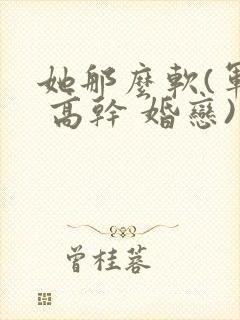 她那麼軟(軍
高幹 婚戀)
曾桂蓉